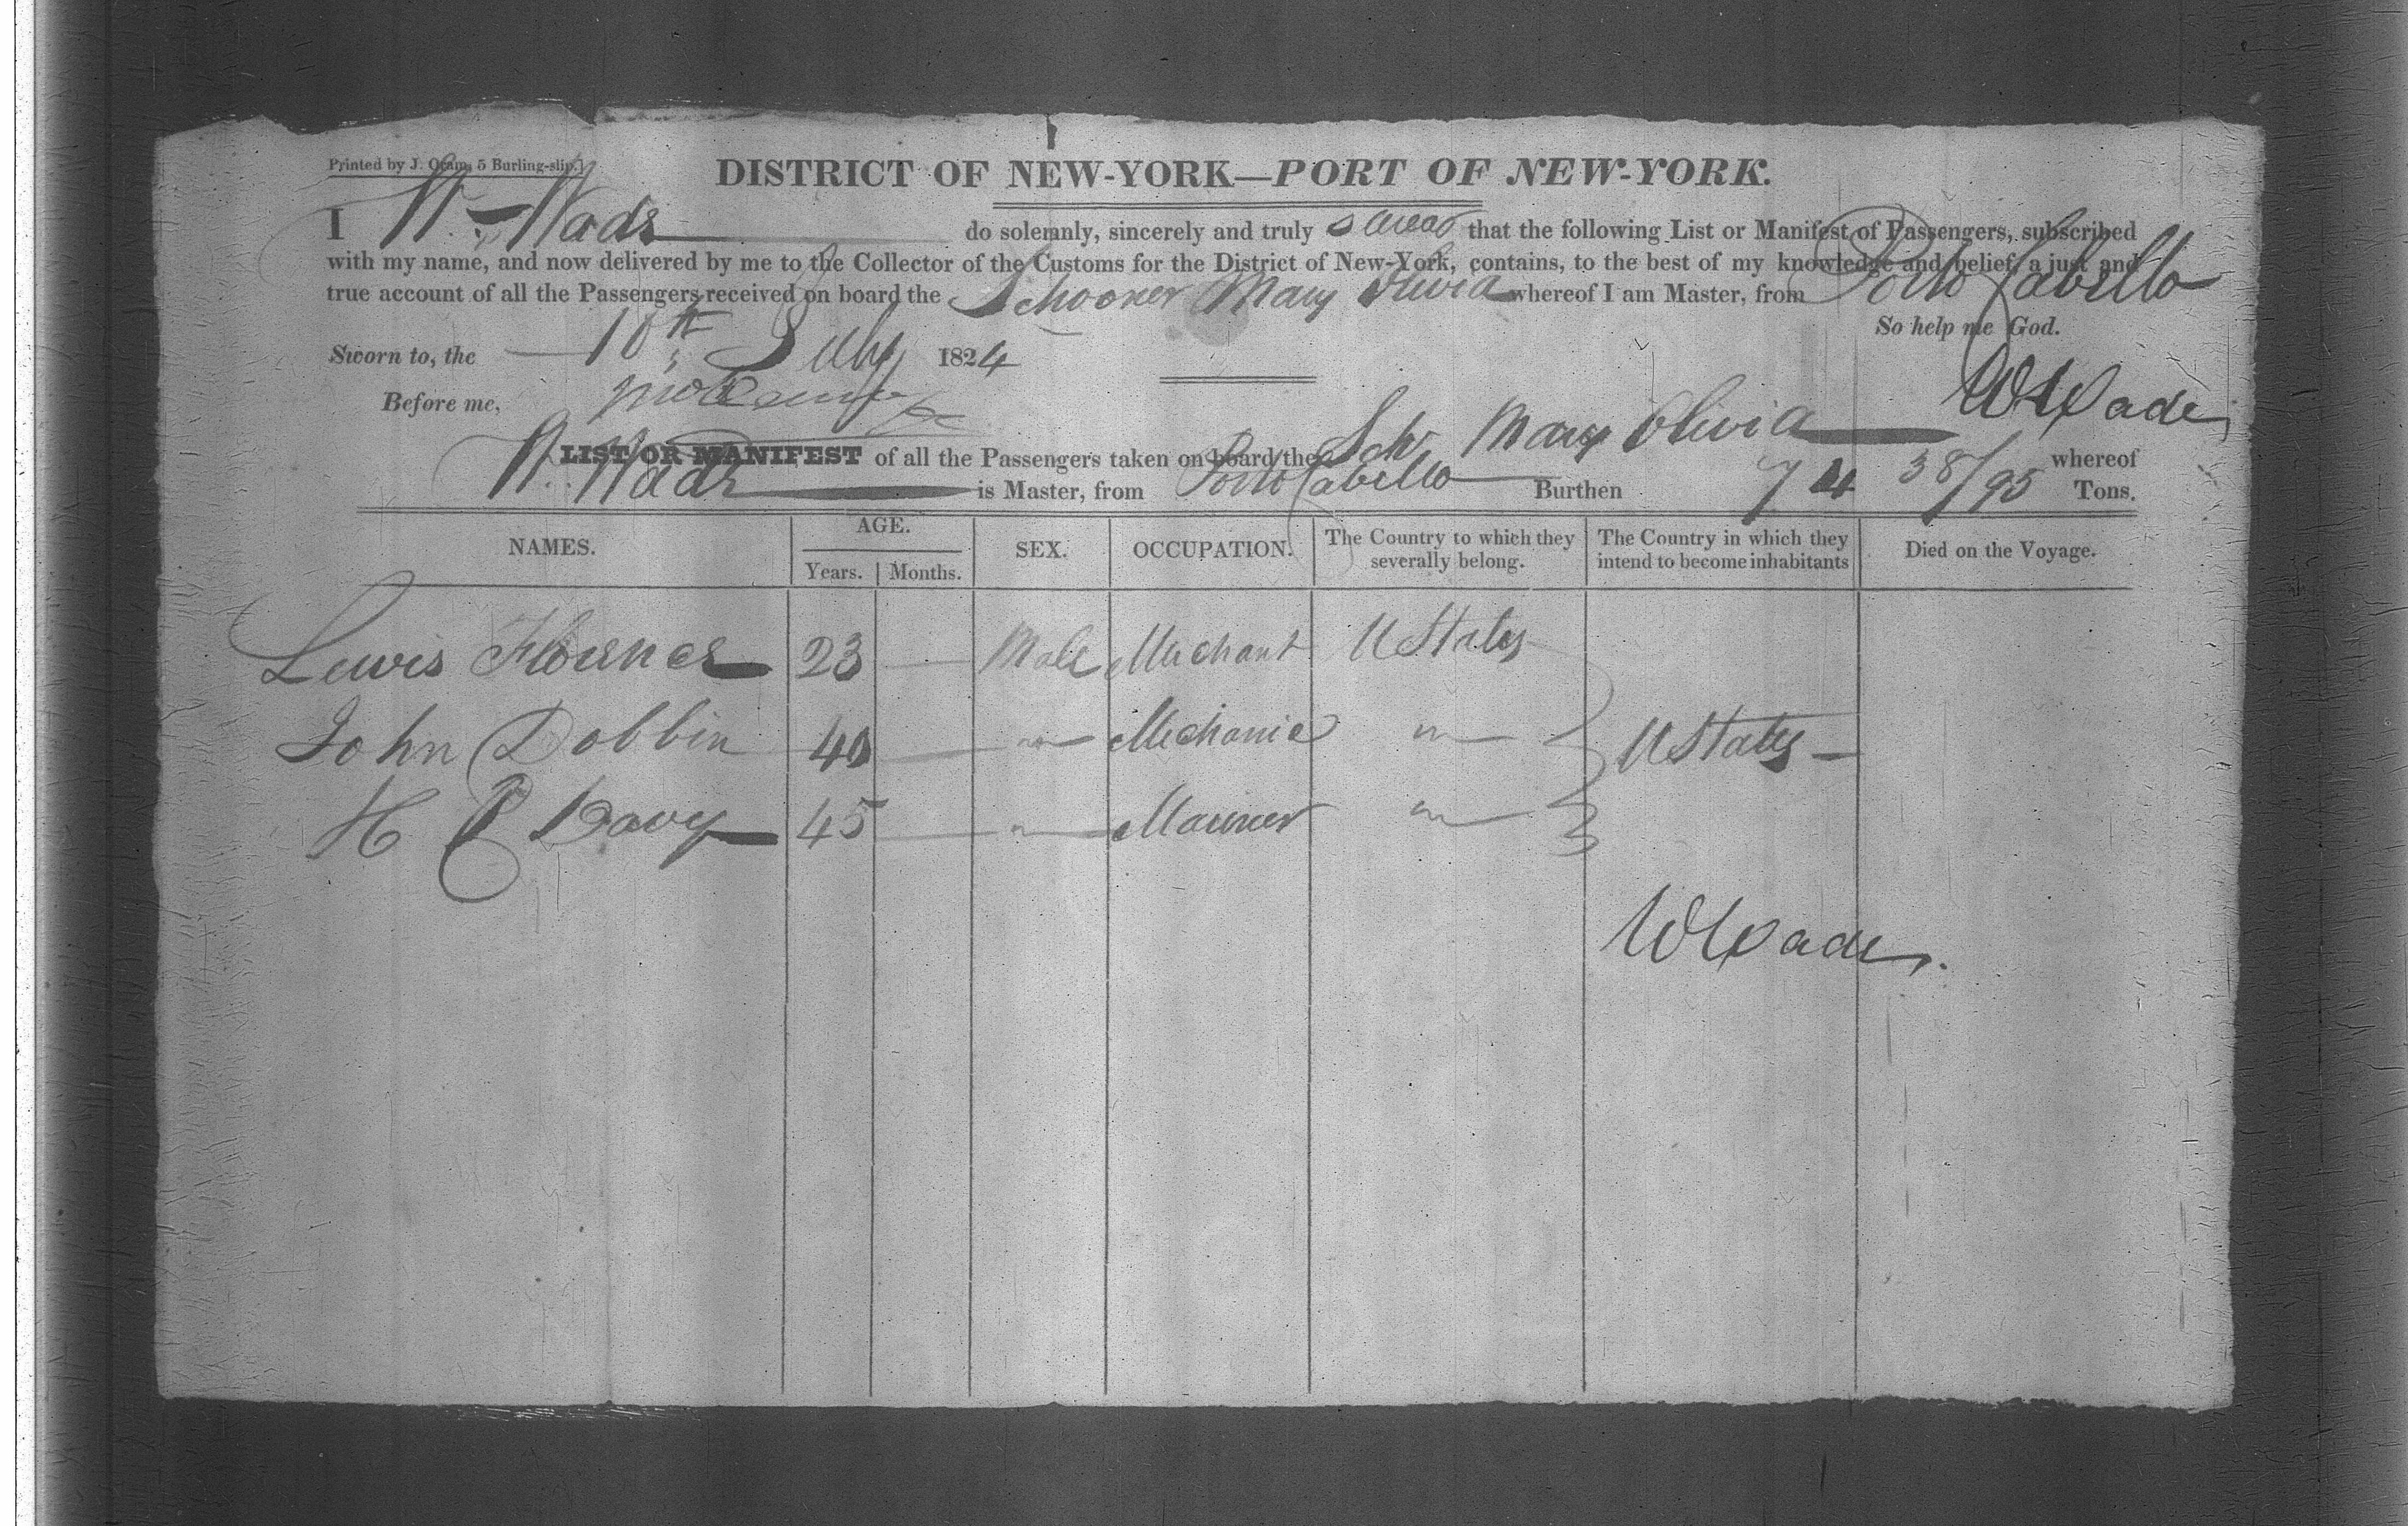 Printed by J. Oram, 5 Burling-slip.]
DISTRICT OF NEW-YORK—PORT OF NEW-YORK.
I W. Wade do solemnly, sincerely and truly swear that the following List or Manifest of Passengers, subscribed
with my name, and now delivered by me to the Collector of the Customs for the District of New-York, contains, to the best of my knowledge and belief, a just and
true account of all the Passengers received on board the Schooner Mary Olivia whereof I am Master, from Porto Cabello
So help me God.
Sworn to, the 10th July 1824
Before me,
W Wade
LIST OR MANIFEST of all the Passengers taken on board the Sch Mary Olivia whereof
W. Wade is Master, from Porto Cabello Burthen 74 38/95 Tons.
NAMES. AGE. SEX. OCCUPATION. The Country to which they severally belong. The Country in which they intend to become inhabitants Died on the Voyage.
Years. Months.
Lewis 23 Male Merchant U States
John Dobbin 40 Mechanic U States
H P Davy 45 Mariner
W Wade.